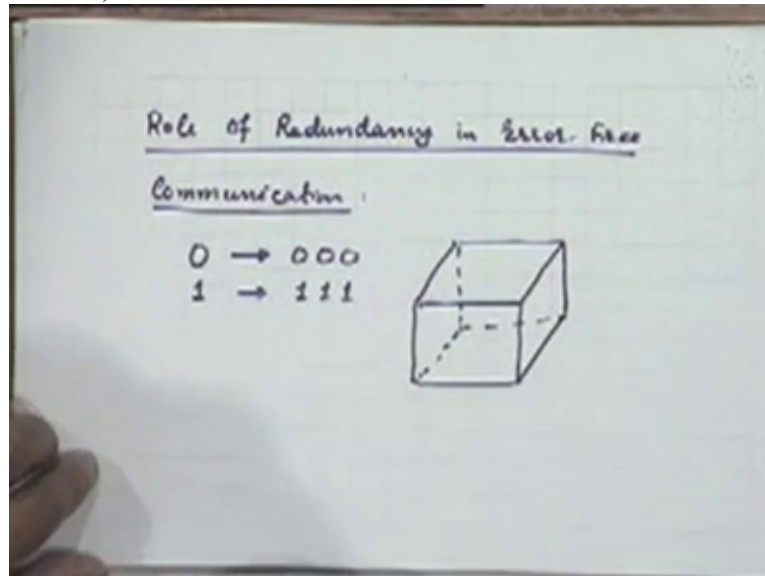 Role of Redundancy in Error-Free
Communication:
0 → 000
1 → 111